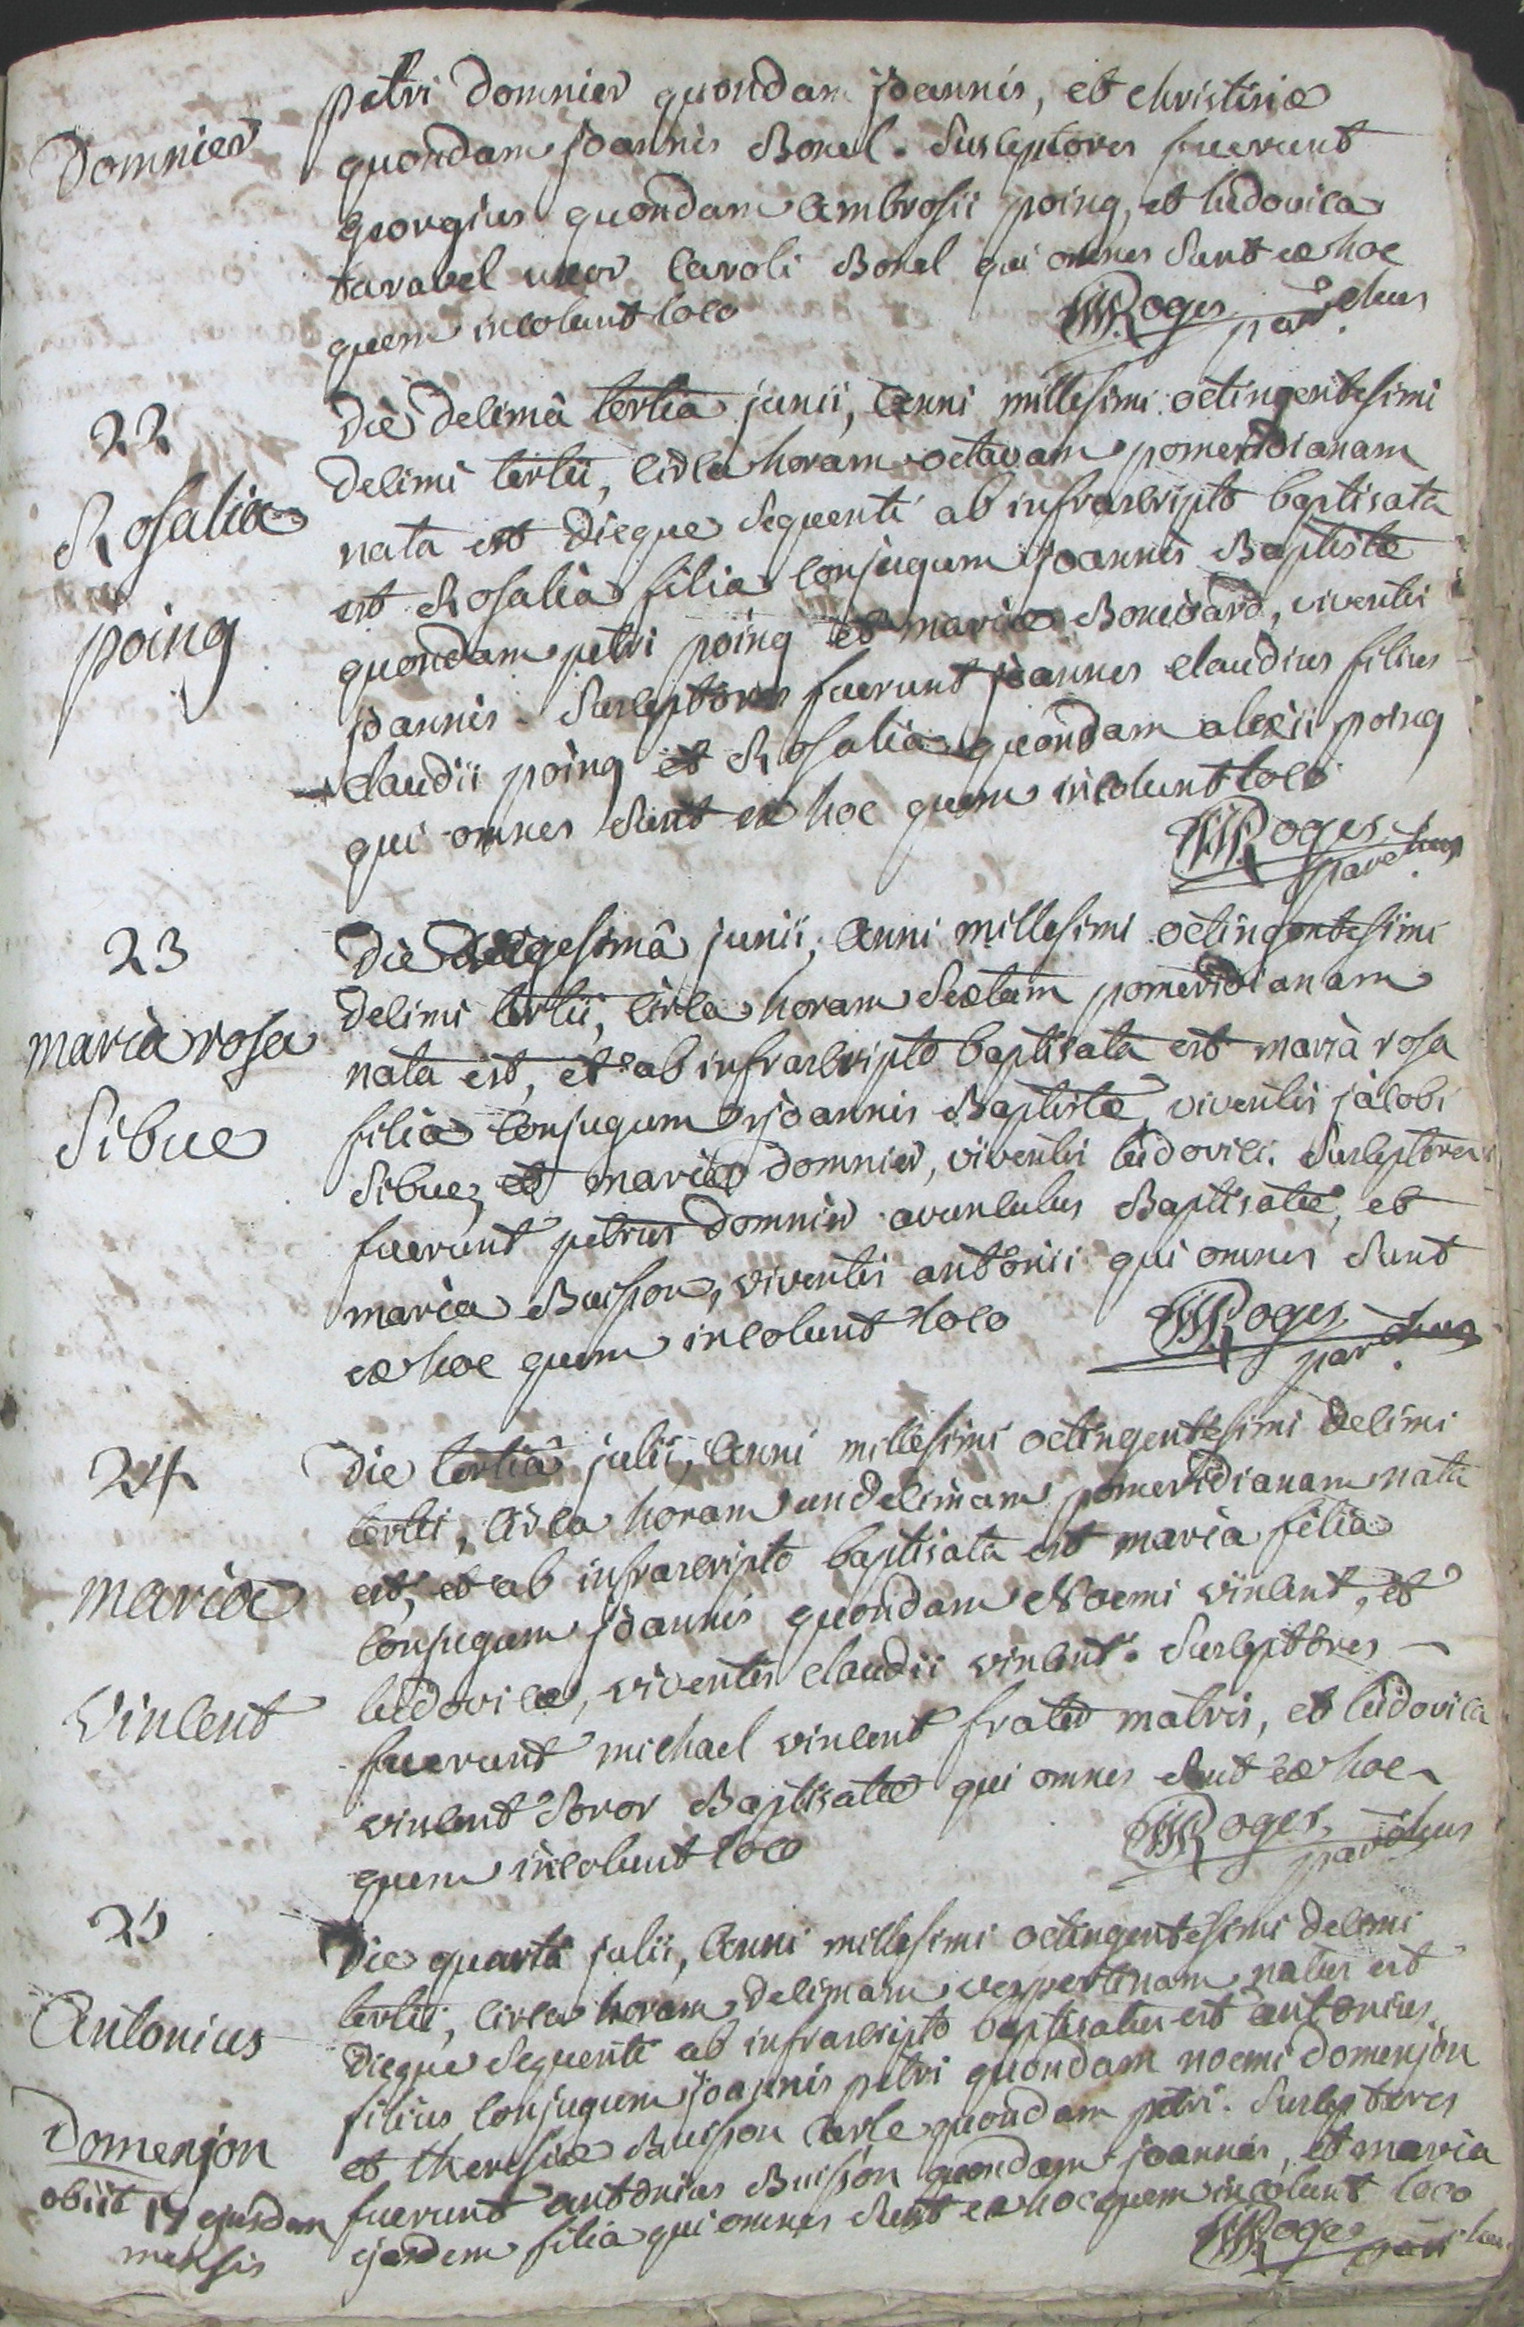 Domnier
petri Domnier quondam joannis, et christinæ
quondam joannis Borel. Susceptores fuerunt
georgius quondam ambrosii poing, et ludovica
taravel uxor caroli Borel qui omnes sunt ex hoc
quem incolunt loco
Roges parochus
22
Rosalia
poing
Die decimâ tertia junii, anni millesimi octingentesimi
decimi tertii, circa horam octavam pomeridianam
nata est dieque sequenti ab infrascripto baptisata
est Rosalia filia conjugum joannis Baptistæ
quondam petri poing et mariæ Bouisard, viventis
joannis. Susceptores fuerunt joannes claudius filius
claudii poing et Rosalia quondam alexii poing
qui omnes sunt ex hoc quem incolunt loco
Roges parochus
23
maria rosa
Sibue
Die vigesimâ junii, anni millesimi octingentesimi
decimi tertii, circa horam sextam pomeridianam
nata est, et ab infrascripto baptisata est maria rosa
filia conjugum joannis Baptistæ, viventis jacobi
Sibue, et mariæ domnier, viventis ludovici. Susceptores
fuerunt petrus domnier avunculus Baptisatæ, et
maria Buisson, viventis antonii qui omnes sunt
ex hoc quem incolunt loco
Roges parochus
24
maria
Vincent
Die tertiâ julii, anni millesimi octingentesimi decimi
tertii, circa horam undecimam pomeridianam nata
est, et ab infrascripto baptisata est maria filia
conjugum joannis quondam Noemi vincent, et
ludovicæ, viventis claudii vincent. Susceptores
fuerunt michael vincent frater matris, et ludovica
vincent soror Baptisatæ qui omnes sunt ex hoc
quem incolunt loco
Roges parochus
25
Antonius
Domenjon
obiit 17 ejusdem
mensis
Die quartâ julii, anni millesimi octingentesimi decimi
tertii, circa horam decimam vespertinam natus est
dieque sequenti ab infrascripto baptisatus est antonius
filius conjugum joannis petri quondam noemi domenjon
et theresiæ Buisson carle quondam petri. Susceptores
fuerunt antonius Buisson quondam joannis, et maria
ejusdem filia qui omnes sunt ex hoc quem incolunt loco
Roges parochus